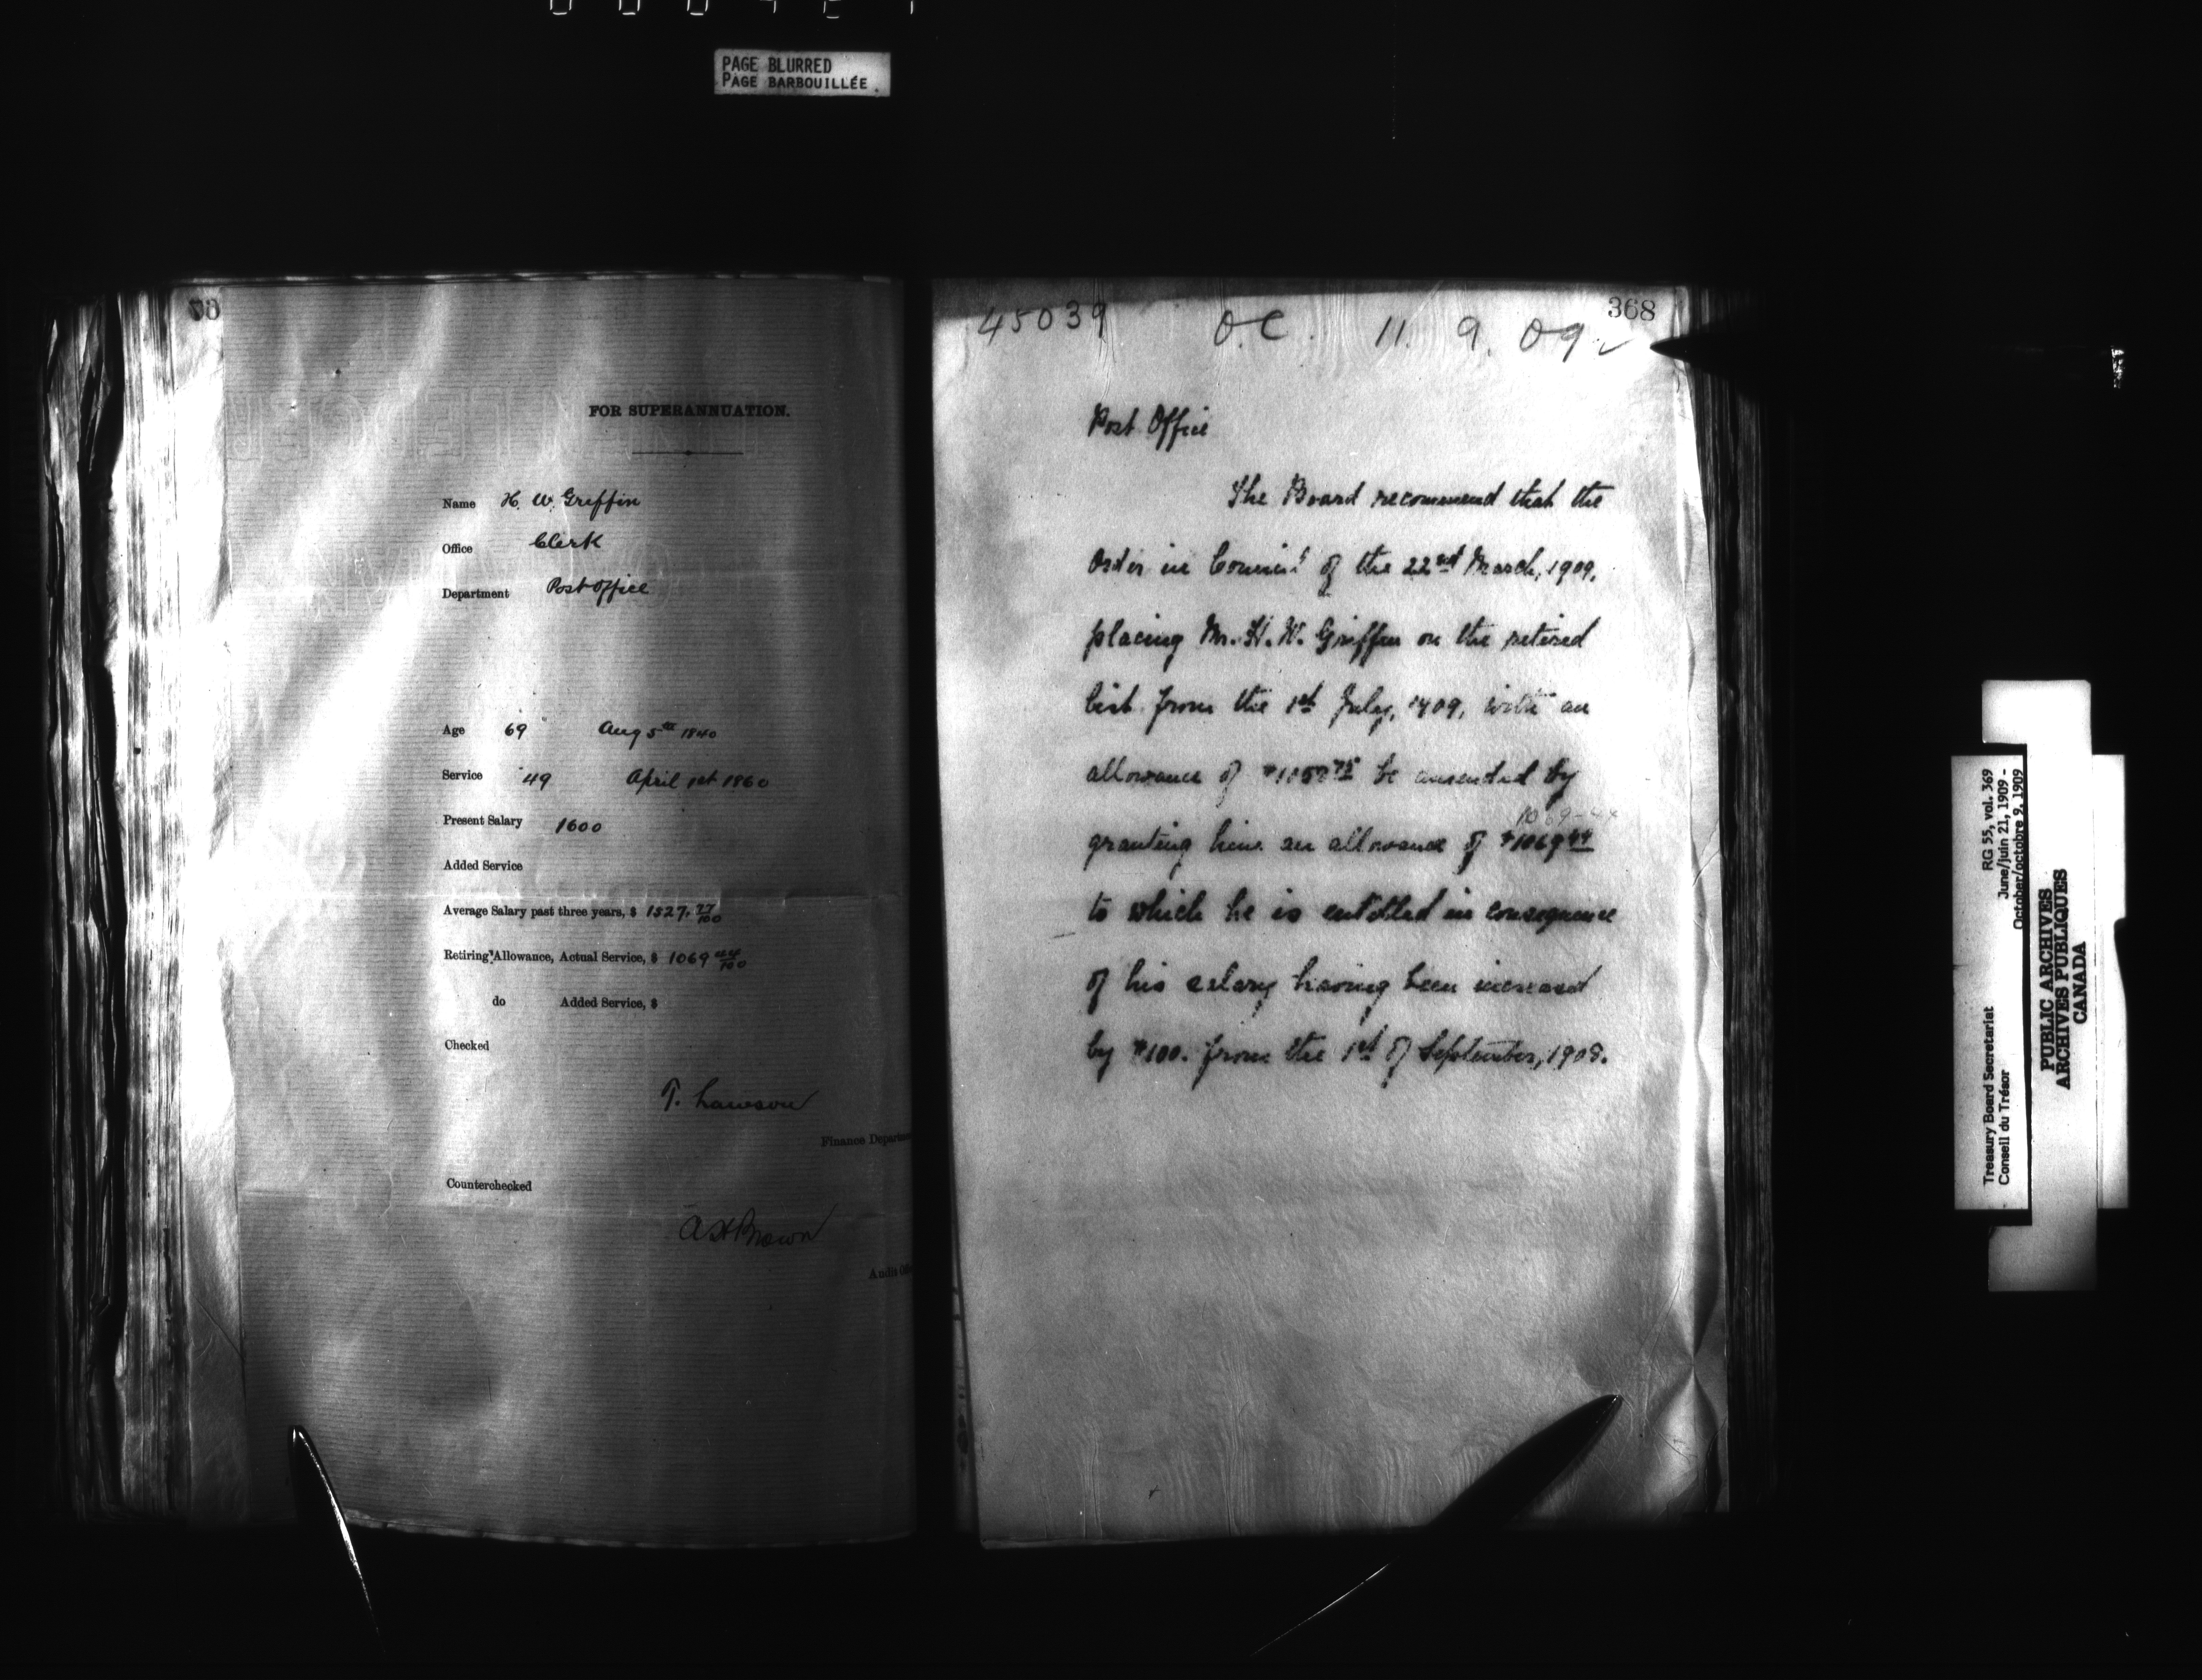 PAGE BLURRED
PAGE BARBOUILLÉE
FOR SUPERANNUATION.
Name H. W. Griffin
Office Clerk
Department Post Office
Age 69 Aug 5th 1840
Service 49 April 1st 1860
Present Salary 1600
Added Service
Average Salary past three years, $ 1527.77/100
Retiring Allowance, Actual Service, $ 1069 44/100
do Added Service, $
Checked
T. Lawson
Finance Departme
Counterchecked
A H Brown
Audit Of
368
45039 O.C. 11. 9. 09
Post Office
The Board recommend that the
Order in Council of the 22nd March, 1909,
placing Mr. H. W. Griffin on the retired
list from the 1st July, 1909, with an
allowance of be amended by
1069-44
granting him an allowance of $1069 44
to which he is entitled in consequence
of his salary having been increased
by $100. from the 1st of September, 1908.
Treasury Board Secretariat RG 55, vol. 369
Conseil du Trésor June/juin 21, 1909 -
October/octobre 9, 1909
PUBLIC ARCHIVES
ARCHIVES PUBLIQUES
CANADA